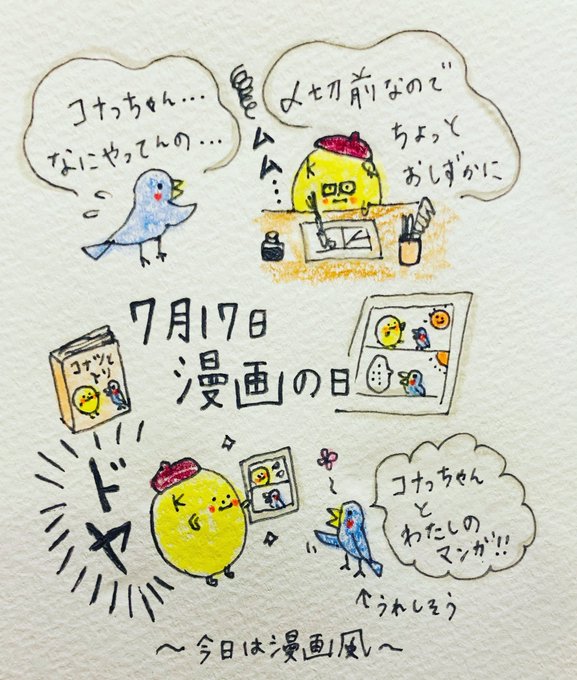 コナっちゃん…
なにやってんの…
〆切前なので
ちょっと
おしずかに
ムム…
K
7月17日
漫画の日
コナツと
トリ
ドヤ
K
コナっちゃん
と
わたしの
マンガ!!
↑うれしそう
～今日は漫画風～